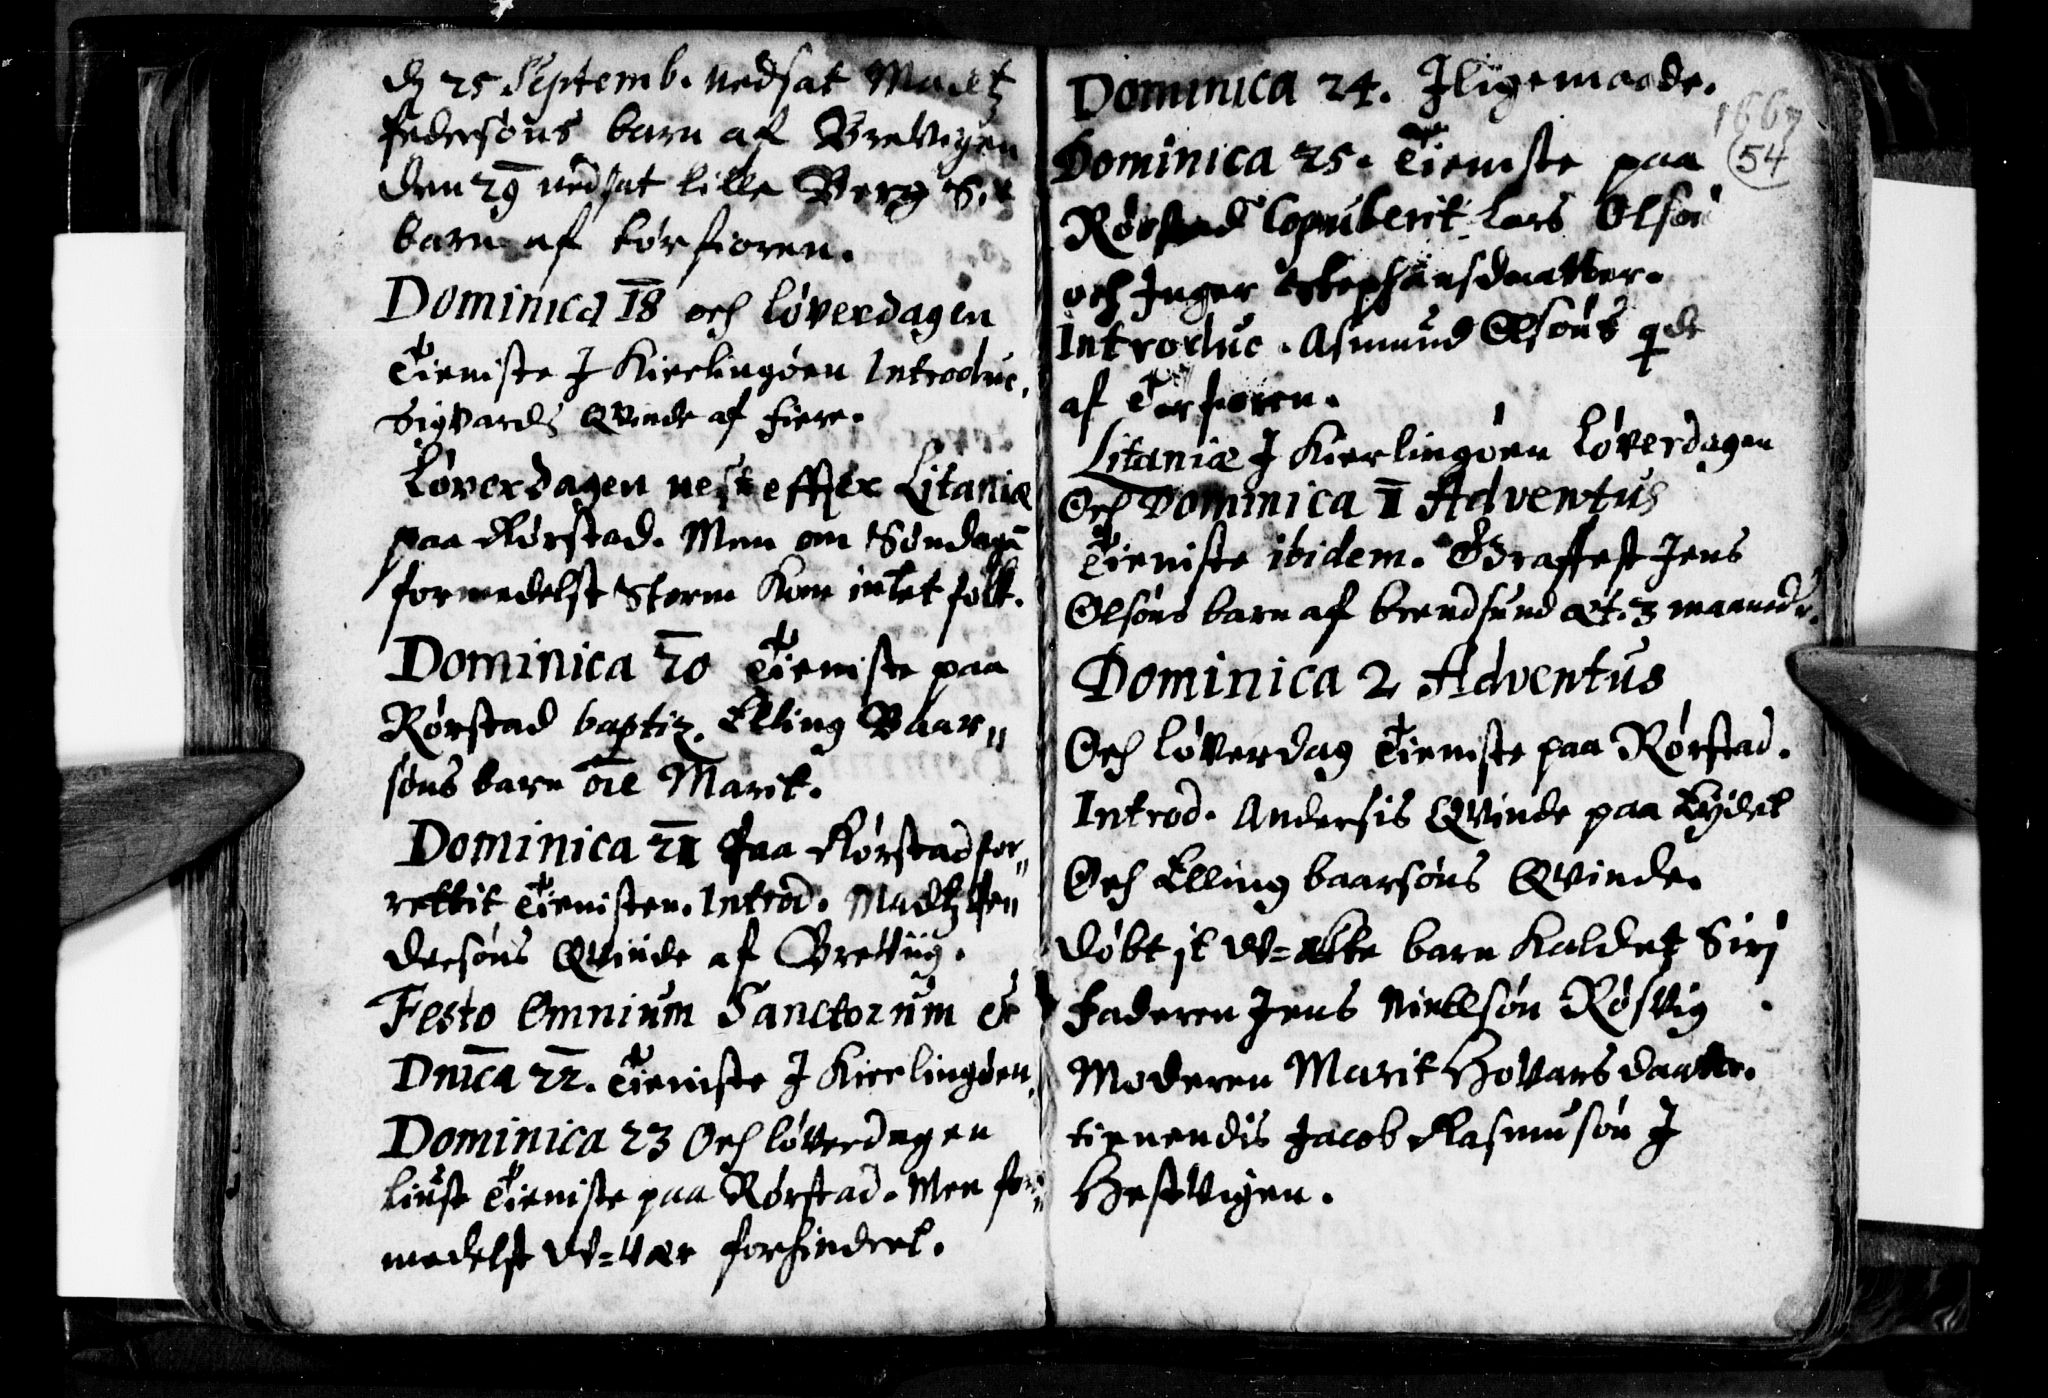 dꝫ 25 Septemb. nedsat Madtz
Pedersøns barn af Brevigen
den 29 nedsat lille Berg S.
barn af torfioren.
Dominica 18 och løverdagen
Tieniste J Kierlingøen Introduc.
Sigvards Qvinde af fiere.
Løverdagen nest effter Litaniæ
paa Rørstad. Men om Søndagē
formedelst Storm Kom intet folk.
Dominica 20 Tieniste paa
Rørstad baptiz. Elling Baar„
søns barn oīe Marit.
Dominica 21 Paa Rørstad for„
rettit Tienisten. Introd. Madtz Pe„
dersøns Qvinde af Breviig.
Festo Omnium Sanctorum et
Dnica 22. Tieniste J Kierlingøen.
Dominica 23 Och løverdagen
liust Tieniste paa Rørstad. Men for„
medelst W=vær forhindret.
Dominica 24. Jligemaade.
1667
54
Dominica 25. Tieniste paa
Rørstad Copulerit Lars Olsøn
och Inger Stephansdaatter.
Introduc. Asmund Olsøns qde
af Torfioren.
Litaniæ J Kierlingøen Løverdagen
Och Dominica 1 Adventus
Tieniste ibidem. Graffest Jens
Olsøns barn af brendsund æt. 3 maaneder.
Dominica 2 Adventus
Och løverdag Tieniste paa Rørstad.
Introd. Andersis Qvinde paa Lydel
Och Elling baarsøns Qvinde.
Døbt it W=ekte barn Kaldet Siri
Faderen Jens Nielsøn Røsvig
Moderen Marit Hovarsdaatter.
tienendis Jacob Rasmusøn J
Hestvigen.